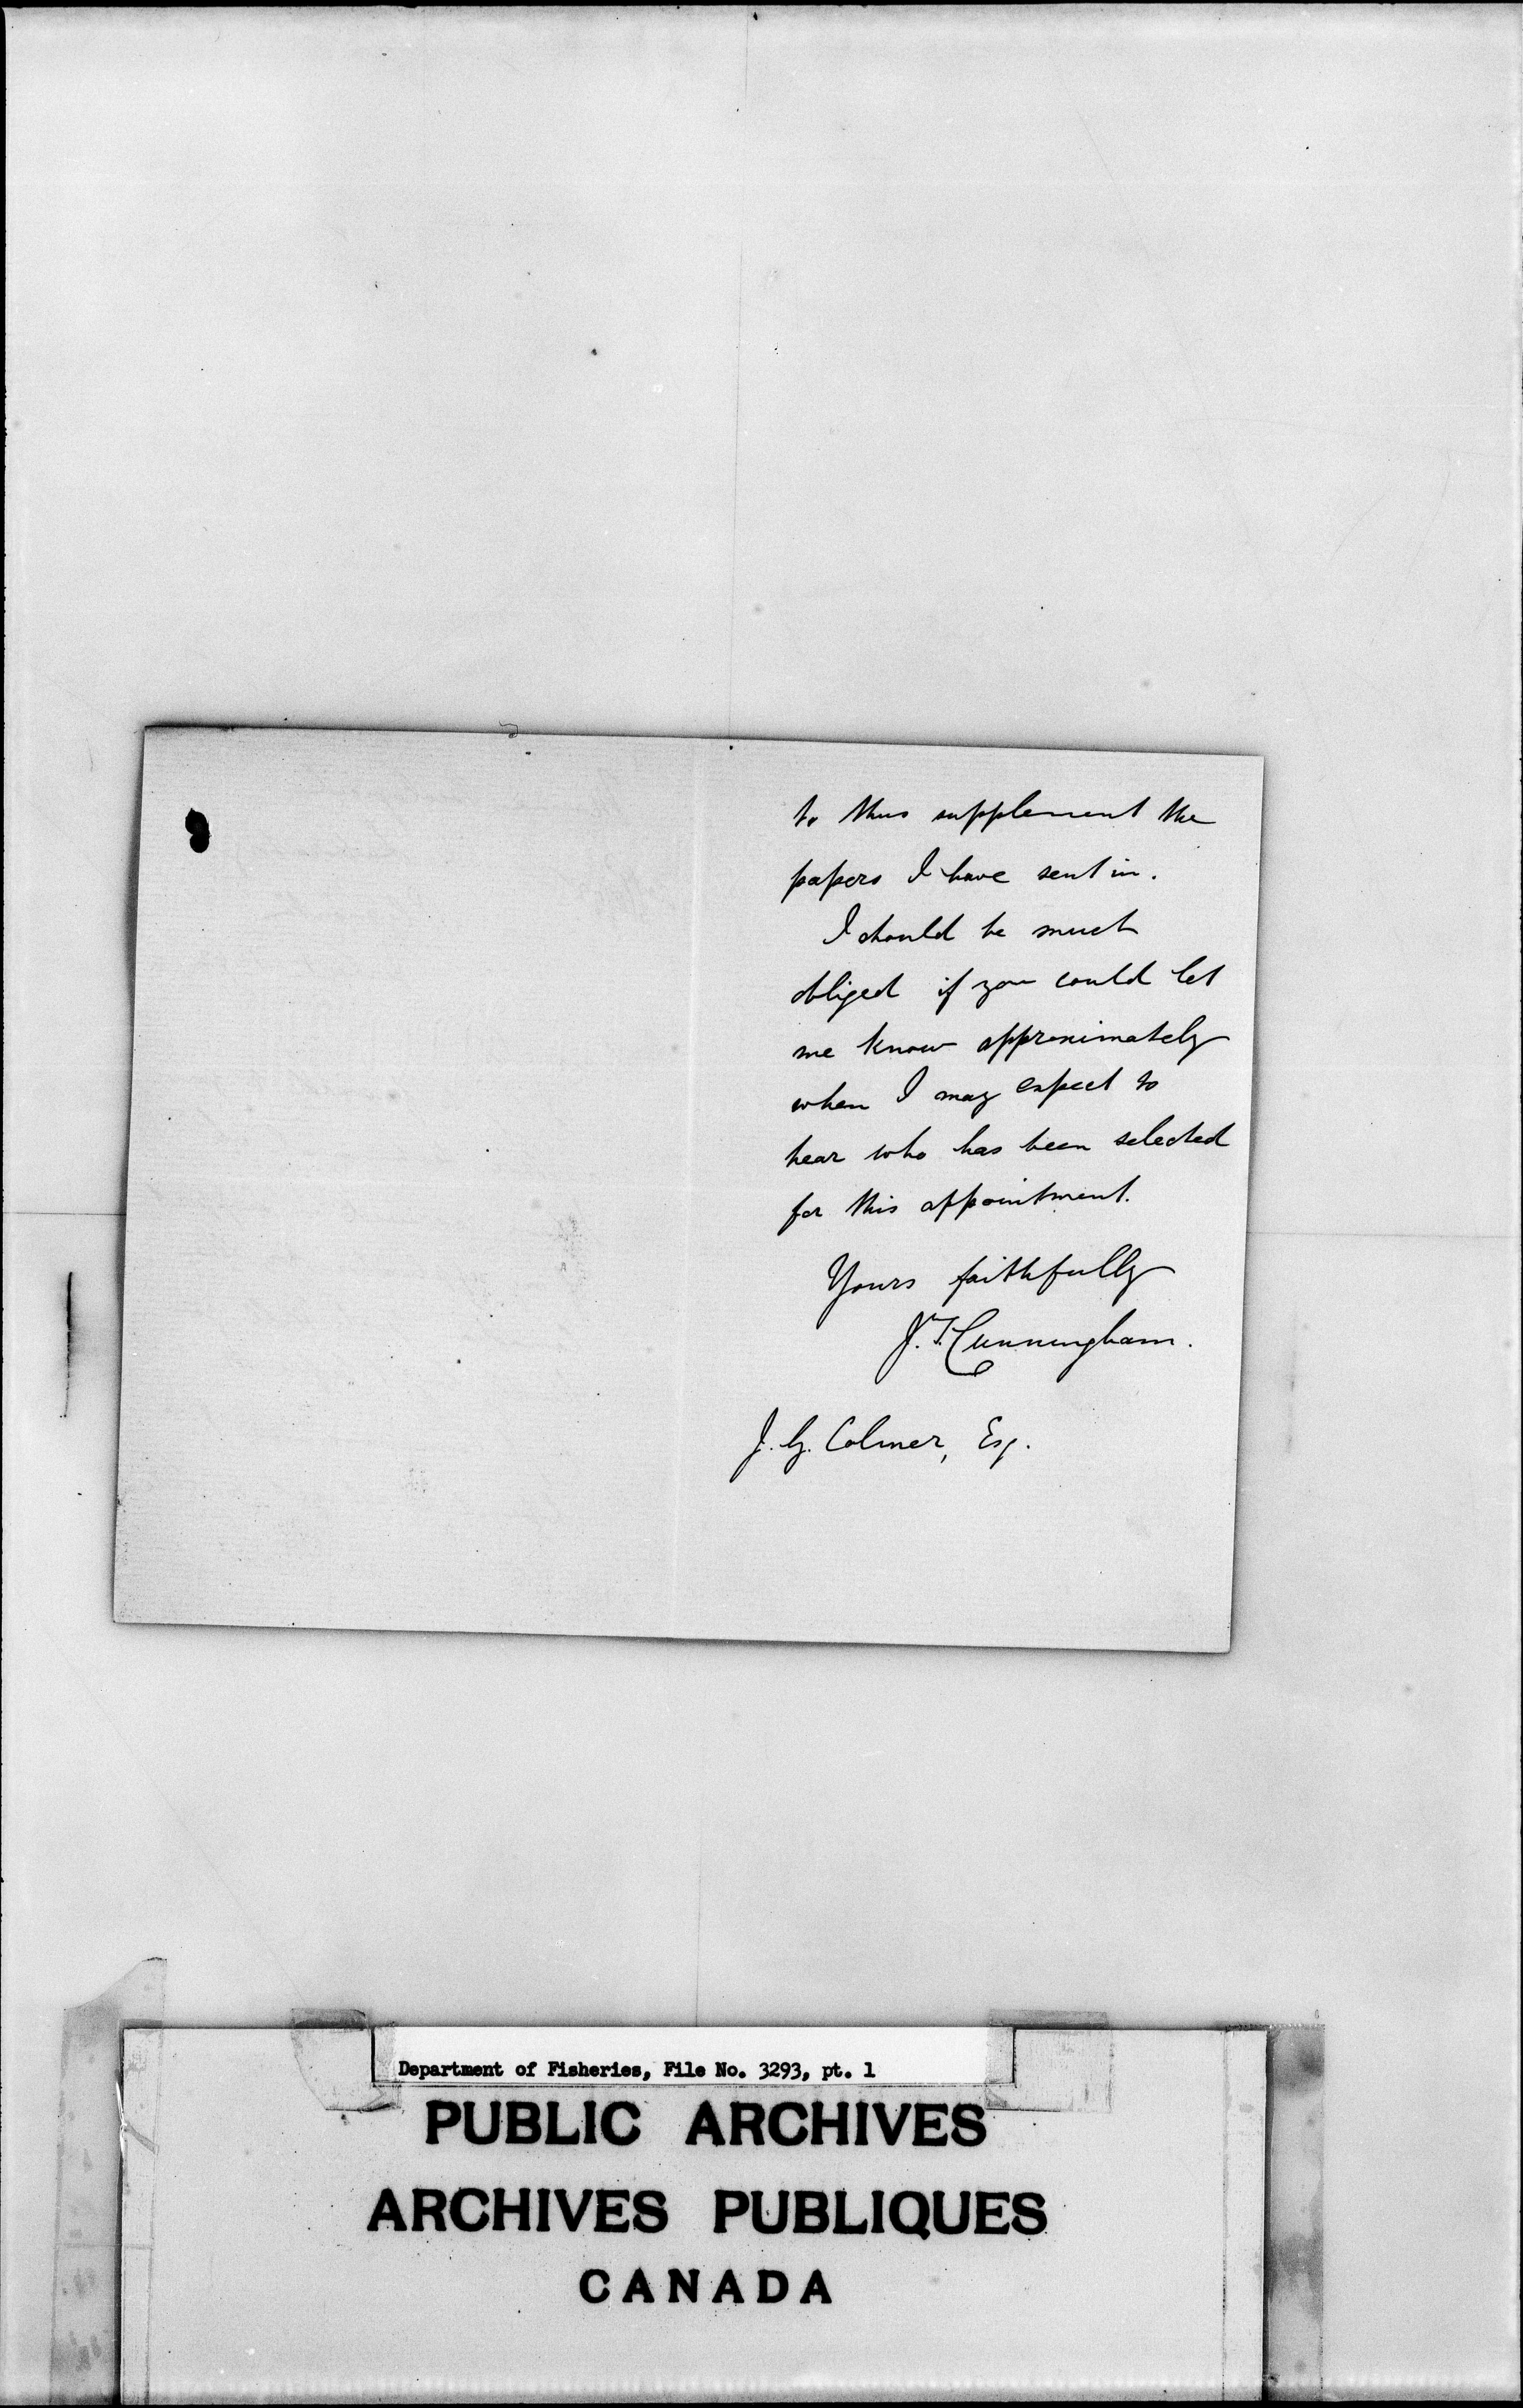 to thus supplement the
papers I have sent in.
I should be much
obliged if you could let
me know approximately
when I may expect to
hear who has been selected
for this appointment.
Yours faithfully
J. T. Cunningham.
J. G. Colmer, Esq.
Department of Fisheries, File No. 3293, pt. 1
PUBLIC ARCHIVES
ARCHIVES PUBLIQUES
CANADA